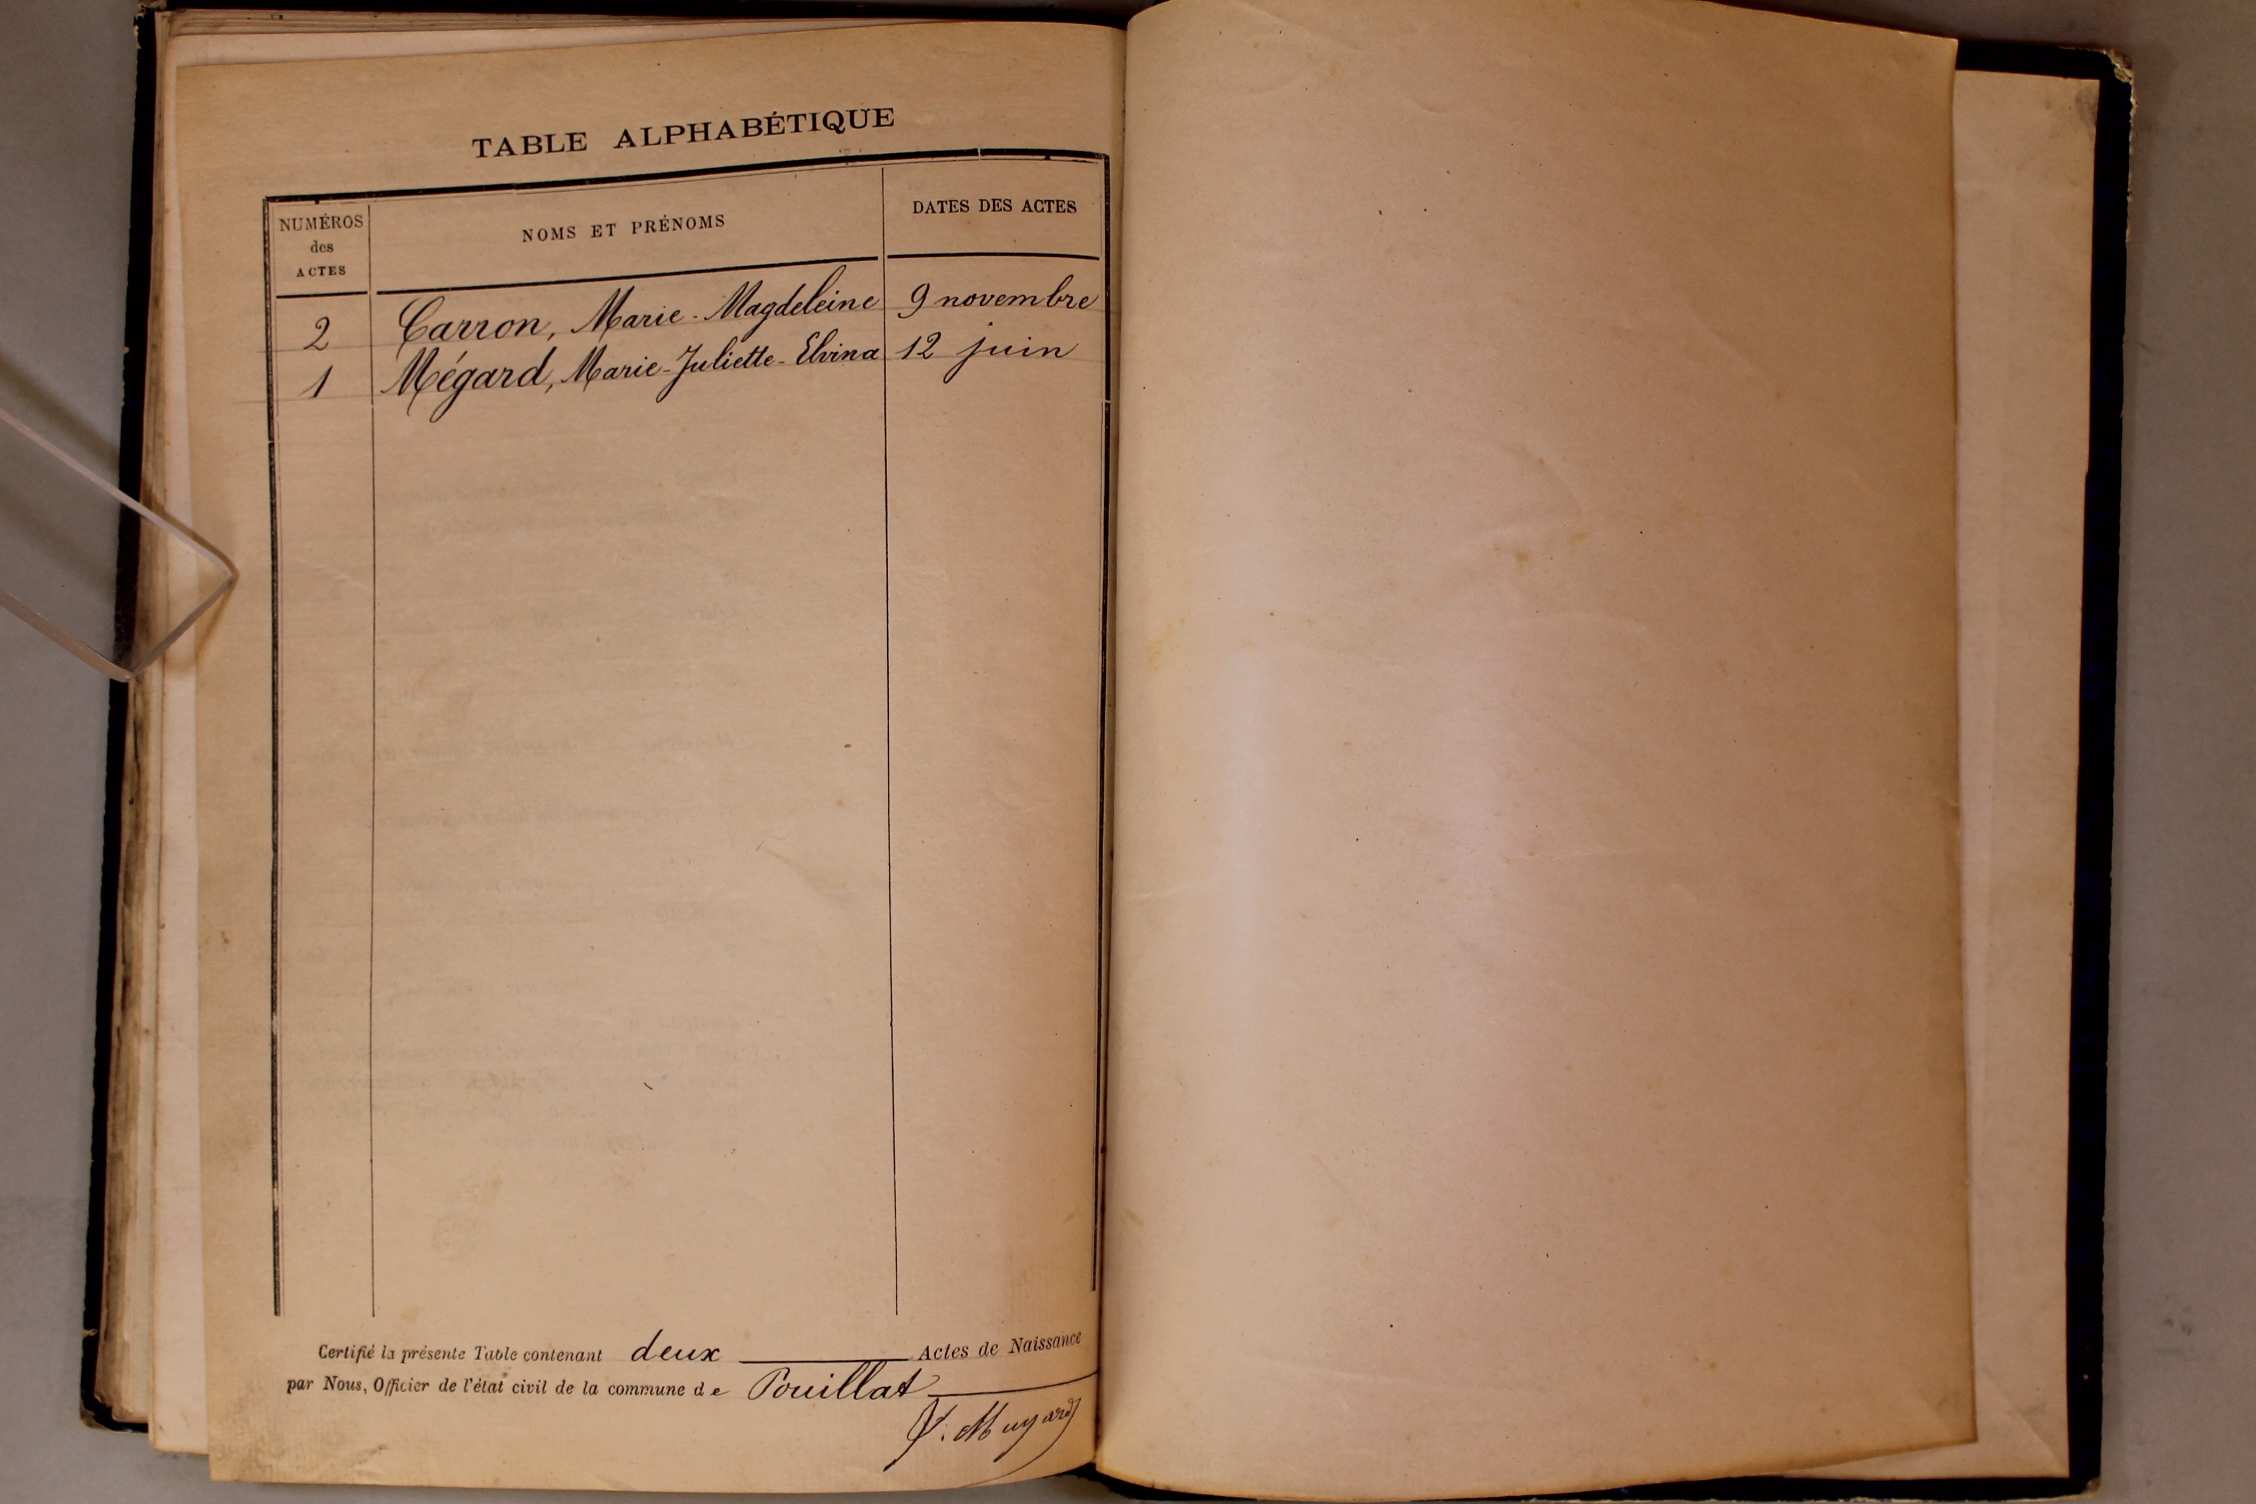 TABLE ALPHABÉTIQUE
NUMÉROS des ACTES NOMS ET PRÉNOMS DATES DES ACTES
2 Carron, Marie-Magdeleine 9 novembre
1 Mégard, Marie-Juliette-Elvina 12 juin
Certifié la présente Table contenant deux Actes de Naissance
par Nous, Officier de l'état civil de la commune de Pouillat
Muyard